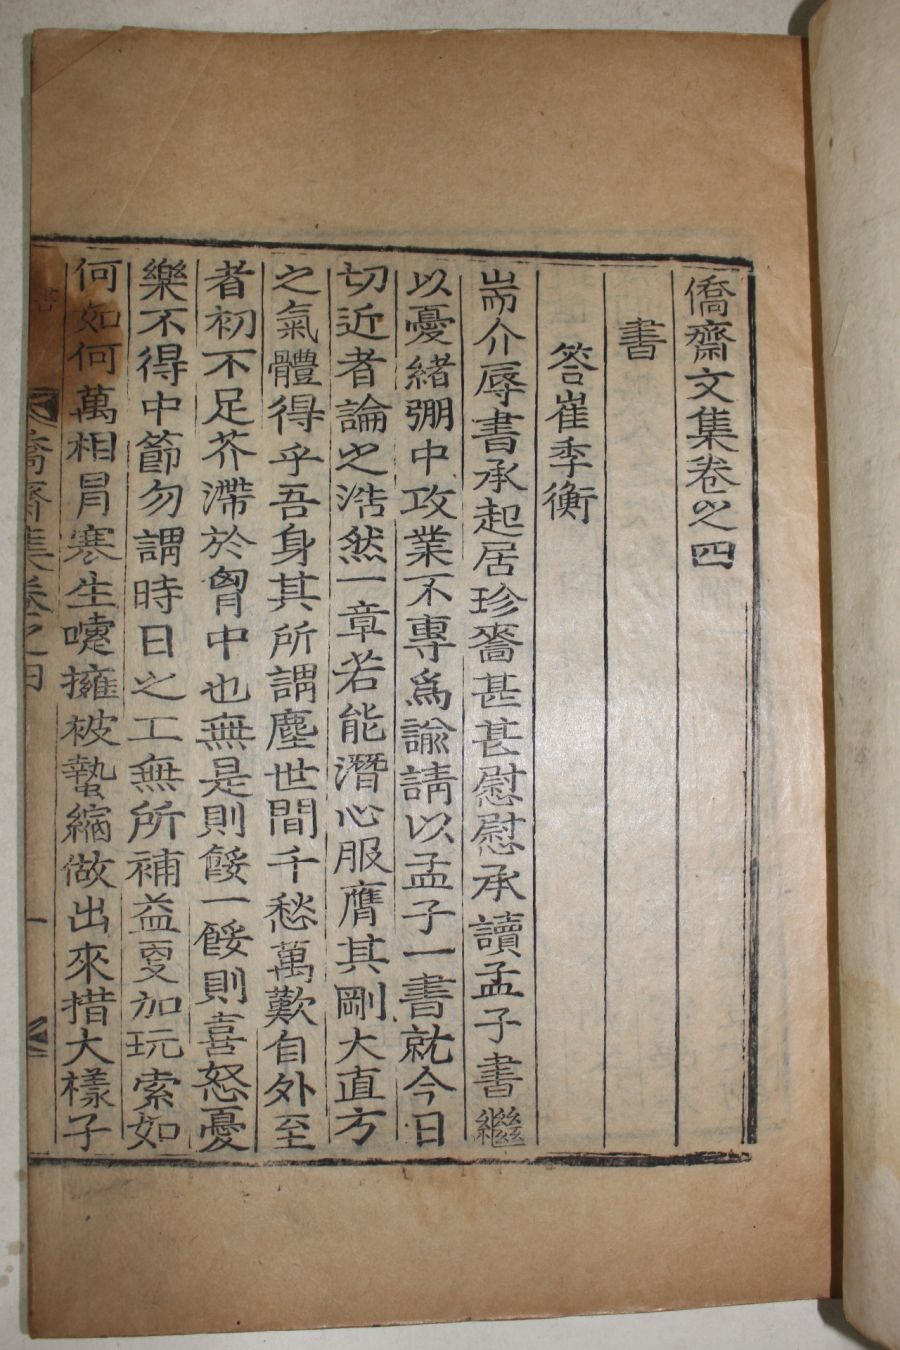 僑齋文集卷之四
書
答崔季衡
耑介辱書承起居珍嗇甚甚慰慰承讀孟子書繼
以憂緒弸中攻業不專爲諭請以孟子一書就今日
切近者論之浩然一章若能潛心服膺其剛大直方
之氣體得乎吾身其所謂塵世間千愁萬歎自外至
者初不足芥滯於胷中也無是則餒一餒則喜怒憂
樂不得中節勿謂時日之工無所補益更加玩索如
何如何萬相冐寒生嚏擁被蟄縮做出來措大樣子
書
僑齋集卷之四
一